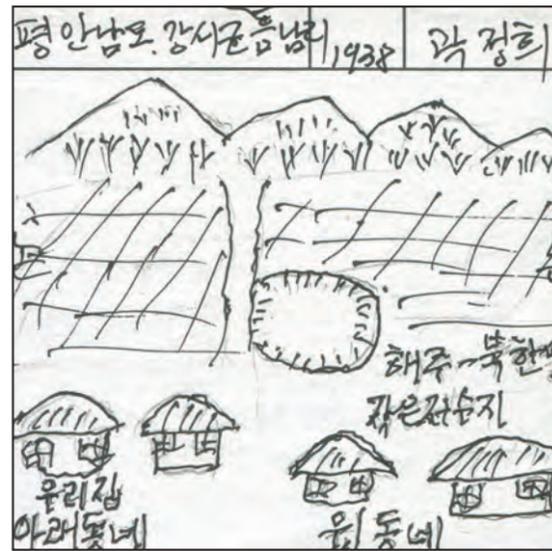 평안남도. 강서군 흠남리 1938 곽정희
해주-북한
작은저수지
우리집
아래동네
윗동네